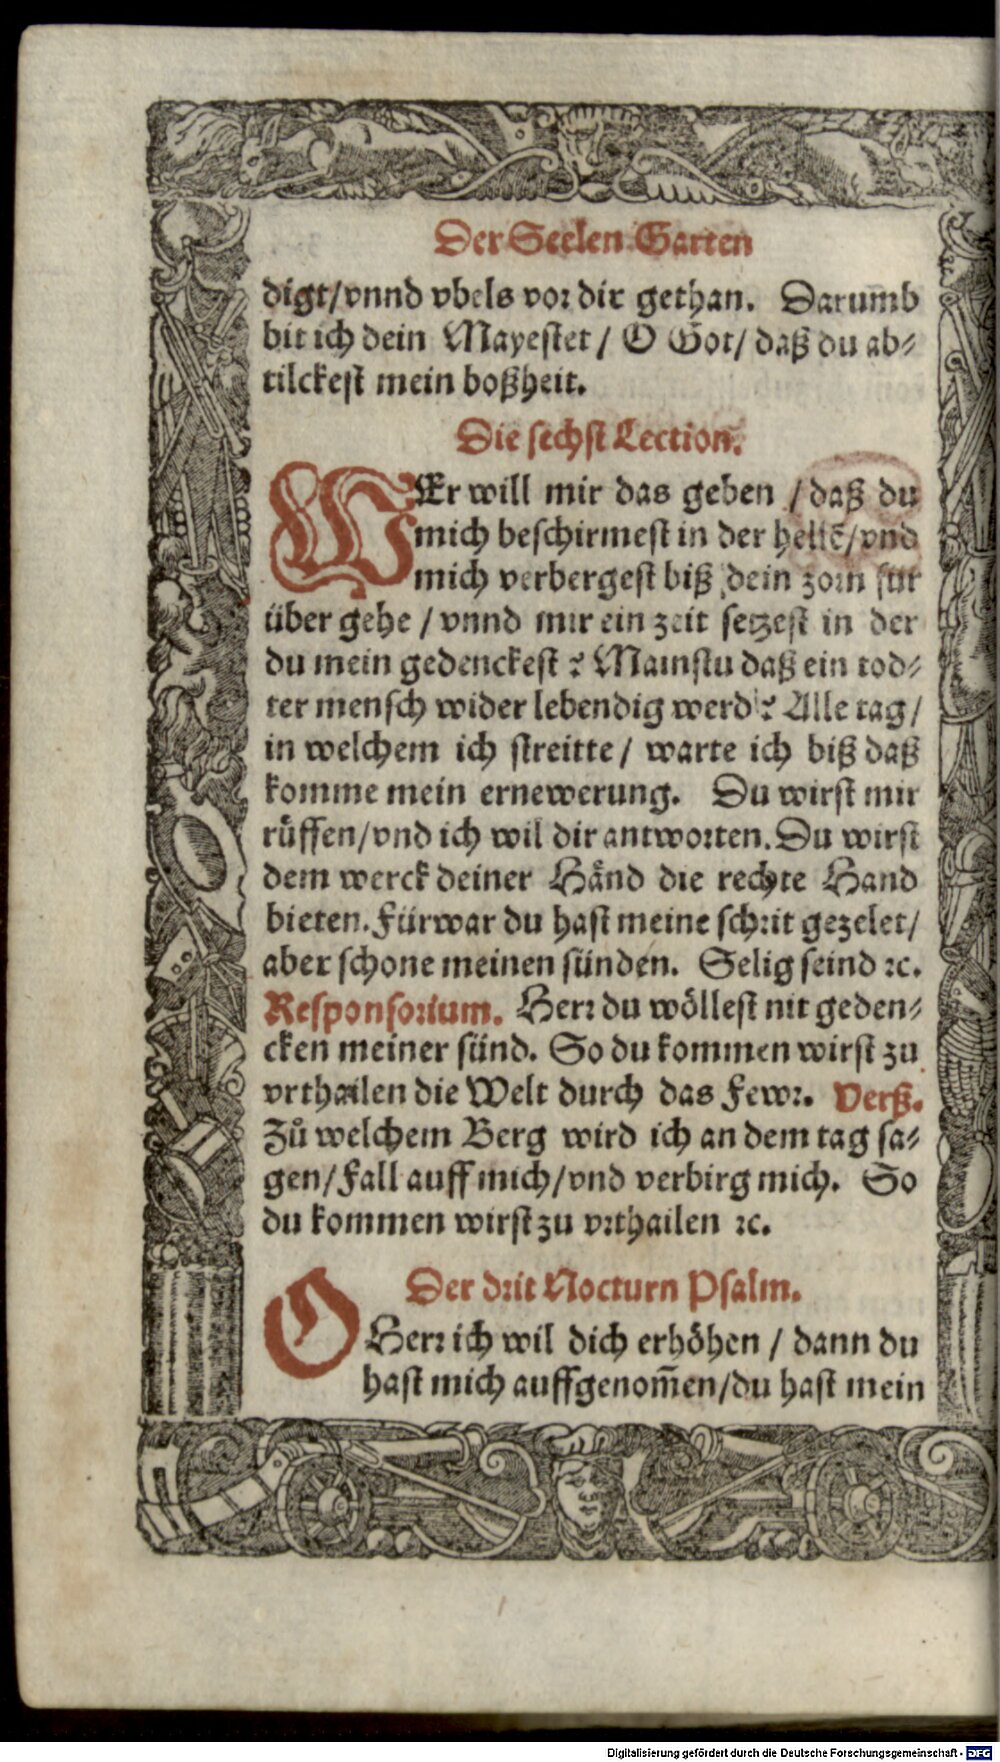 Der Seelen Garten
digt/vnnd vbels vor dir gethan. Darumb
bit ich dein Mayestet / O Got/ daß du ab⸗
tilckest mein boßheit.
Die sechst Lection.
WEr will mir das geben / daß du
mich beschirmest in der hellē/vnd
mich verbergest biß dein zorn für
über gehe / vnnd mir ein zeit setzest in der
du mein gedenckest? Mainstu daß ein tod⸗
ter mensch wider lebendig werd? Alle tag/
in welchem ich streitte/ warte ich biß daß
komme mein ernewerung. Du wirst mir
rüffen/vnd ich wil dir antworten. Du wirst
dem werck deiner Händ die rechte Hand
bieten. Fürwar du hast meine schrit gezelet/
aber schone meinen sünden. Selig seind ꝛc.
Responsorium. Herr du wöllest nit geden⸗
cken meiner sünd. So du kommen wirst zu
vrthailen die Welt durch das Fewr. Verß.
Zů welchem Berg wird ich an dem tag sa⸗
gen/Fall auff mich/vnd verbirg mich. So
du kommen wirst zu vrthailen ꝛc.
Der drit Nocturn Psalm.
O Herr ich wil dich erhöhen / dann du
hast mich auffgenom̄en/du hast mein
Digitalisierung gefördert durch die Deutsche Forschungsgemeinschaft - DFG